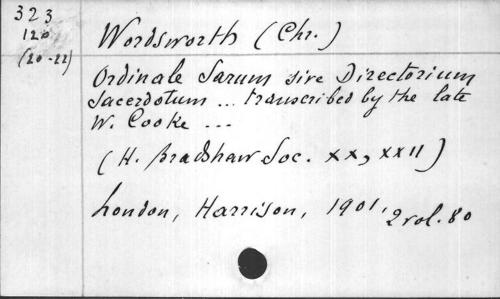 323
120
(20-22)
Wordsworth (Chr.)
Ordinale Sarum sive Directorium
Sacerdotum ... transcribed by the late
W. Cooke ...
(H. Bradshaw Soc. XX, XXII)
London, Harrison, 1901, 2 vol. 80